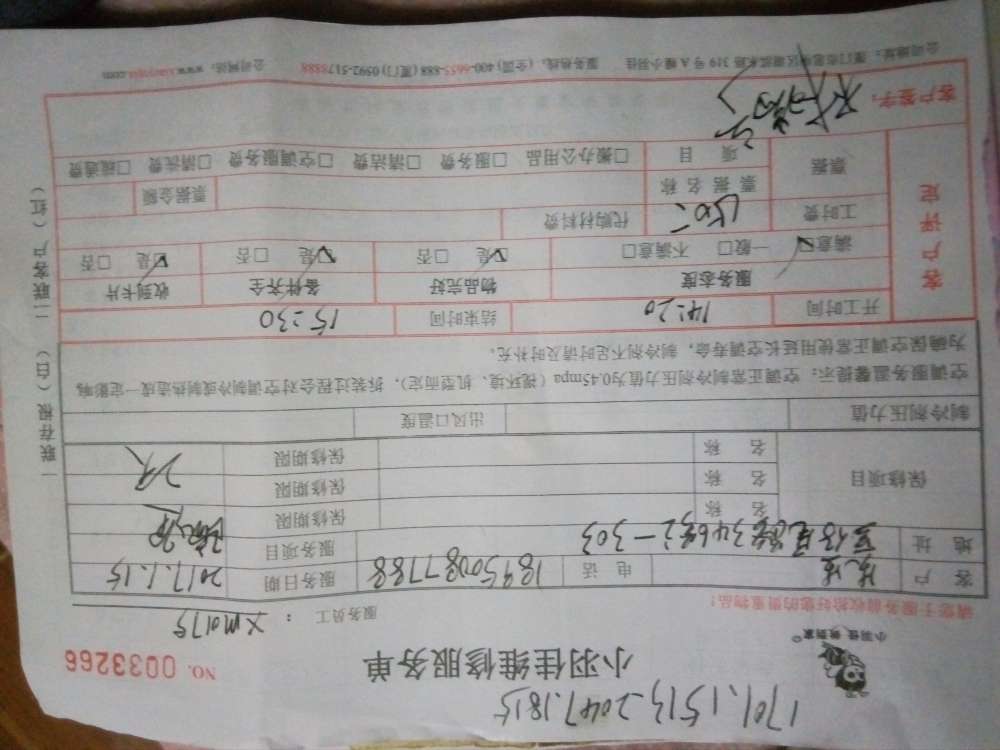 1701.1513.2047.1815
小羽佳维修服务单
NO. 0033266
小羽佳·帮到家
请您于服务前收拾好您的贵重物品!
服务员工 : XM0175
客 户 电 话 18950087788 服务日期 2017.1.15
地 址 346号之一303 服务项目
保修项目 名 称 保修期限
名 称 保修期限
名 称 保修期限
制冷剂压力值 出风口温度
空调服务温馨提示:空调正常制冷剂压力值为0.45mpa(视环境、机型而定),拆装过程会对空调制冷或制热造成一定影响,
为确保空调正常使用延长空调寿命,制冷剂不足时请及时补充。
开工时间 14:20 结束时间 15:30
客户评定
服务态度 物品完好 备件齐全 收到卡片
满意☑ 一般□ 不满意□ ☑是 □否 ☑是 □否 ☑是 □否
工时费 150元 代购材料费
票据 票据名称 票据金额
项 目 □办公用品 □服务费 □清洁费 □空调服务费 □清洗费 □疏通费
客户签字:
公司地址:厦门市思明区湖滨东路319号A幢小羽佳 服务热线:(全国)400-6655-888 (厦门)0592-5178888 公司网站:www.xiaoyujia.com
一联存根(白) 二联客户(红)